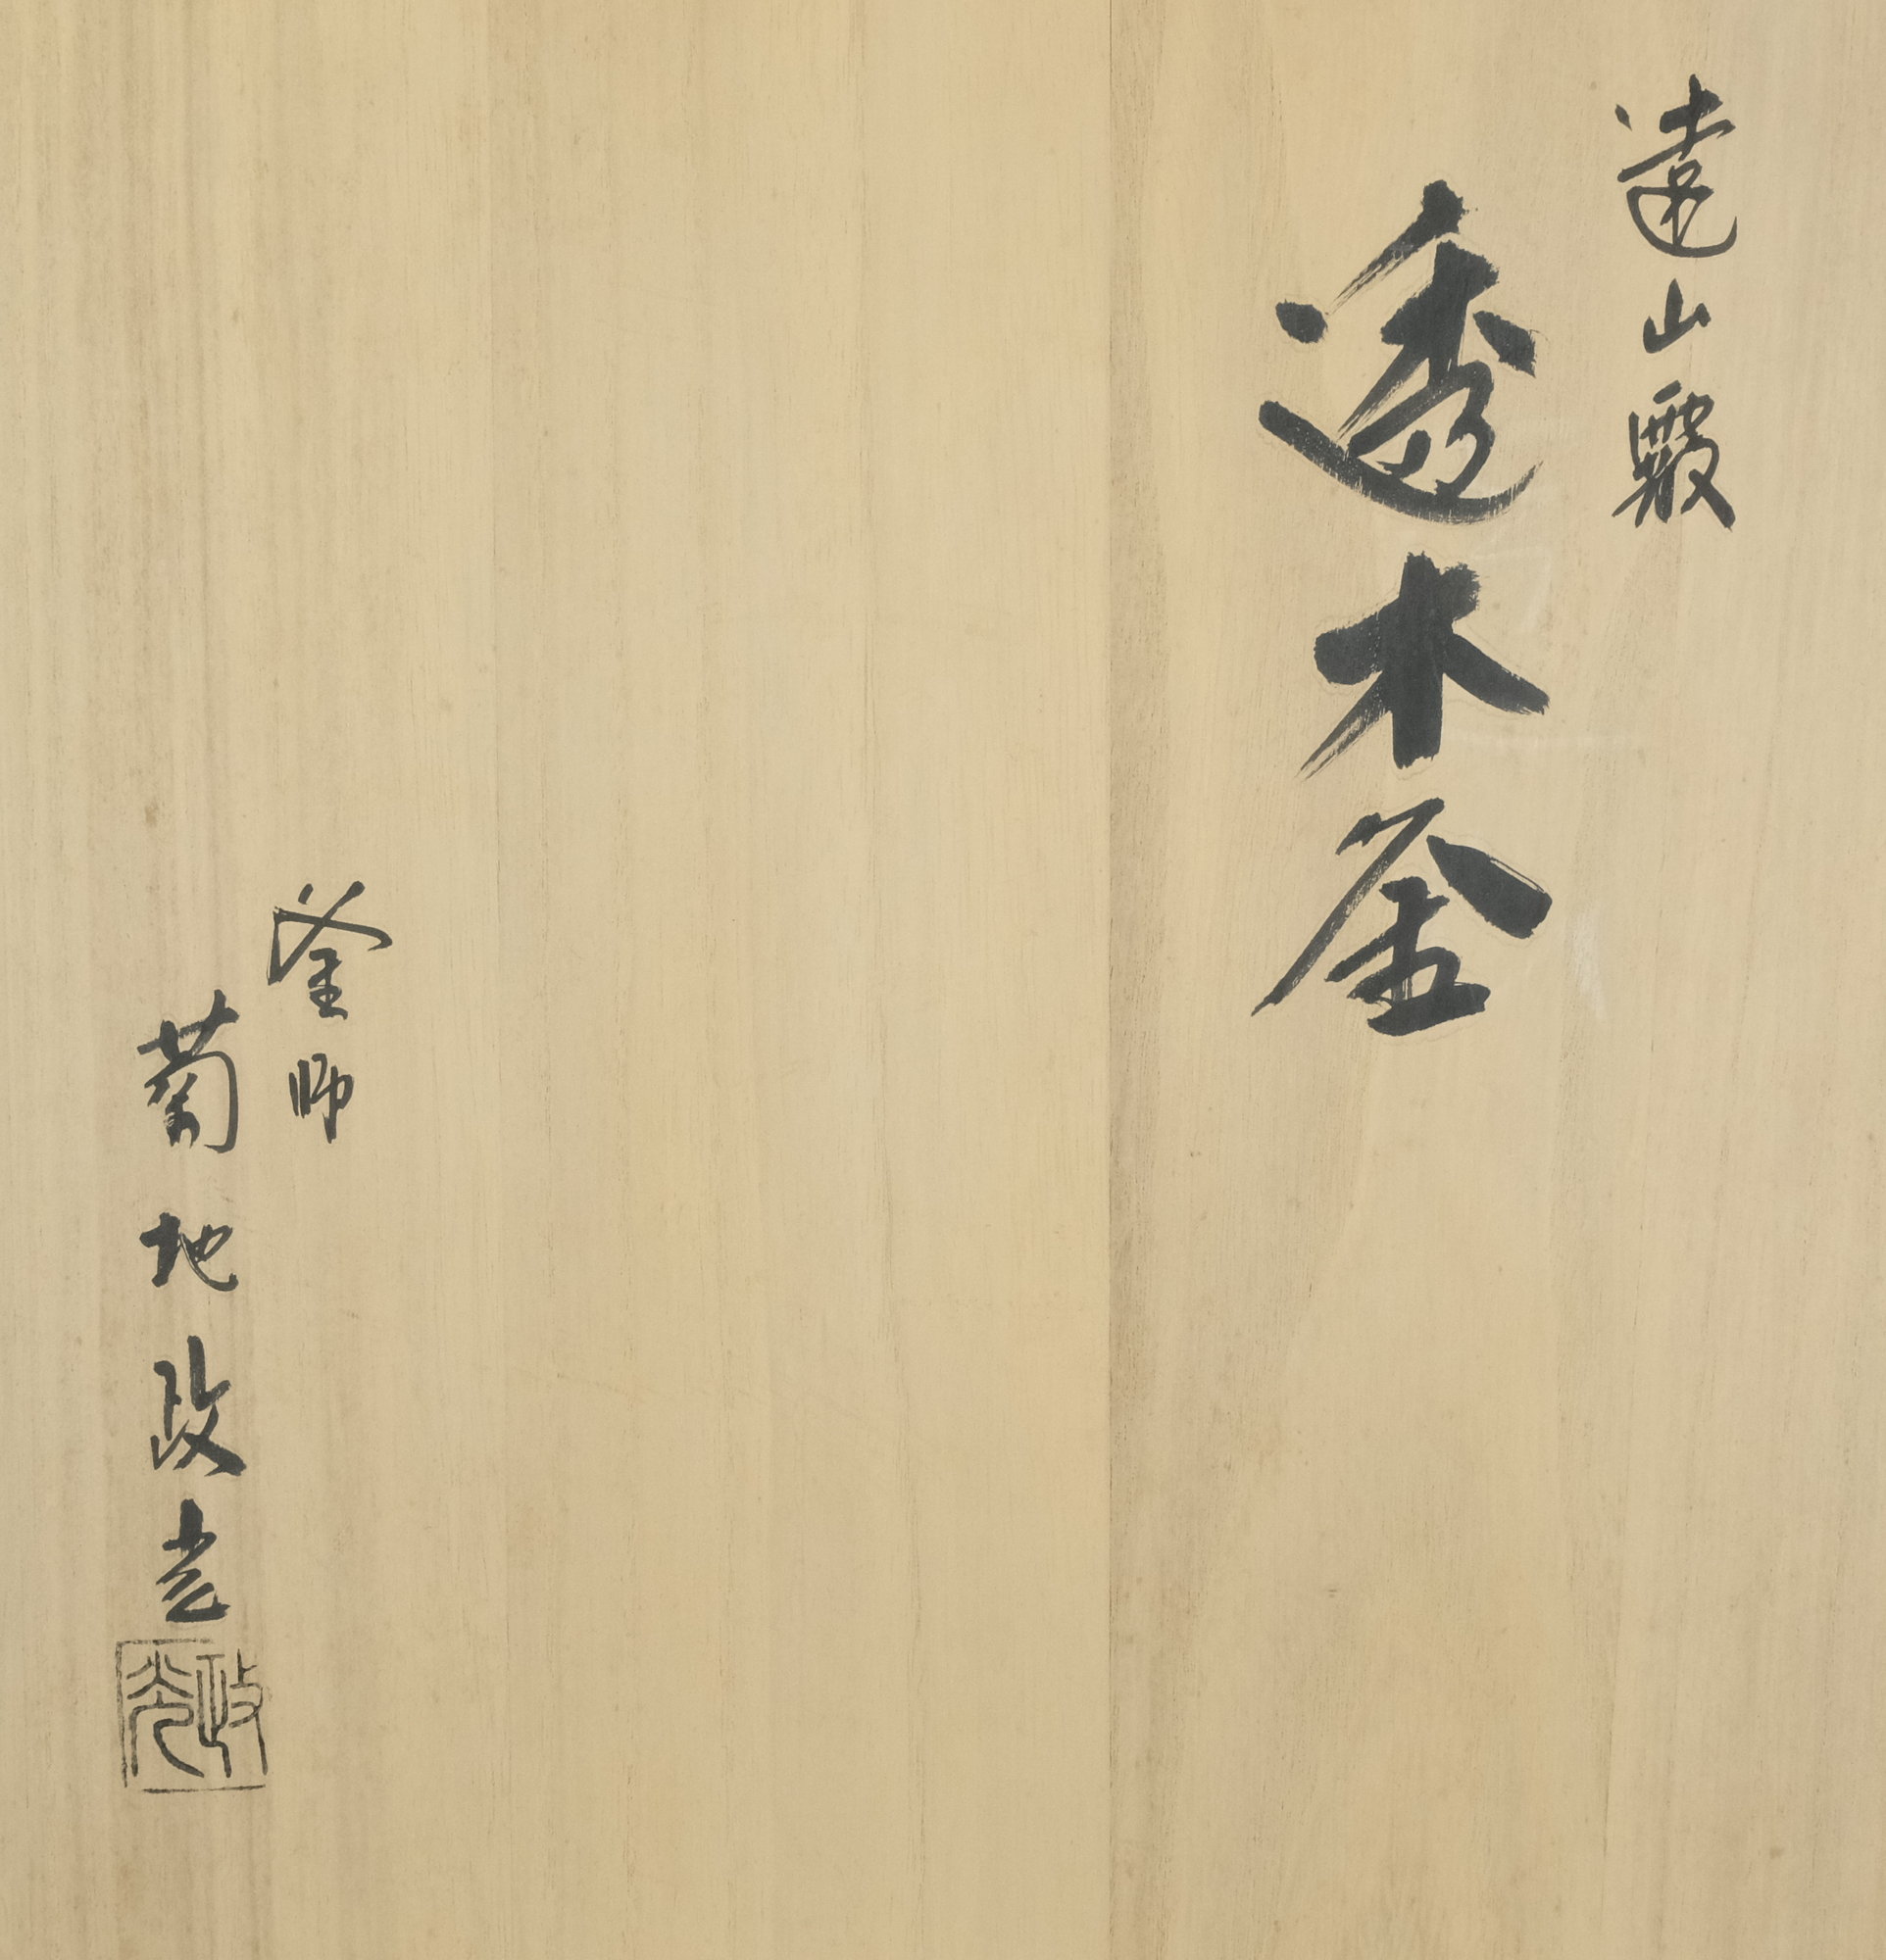 遠山霰
透木釜
釜師
菊地政光
政光